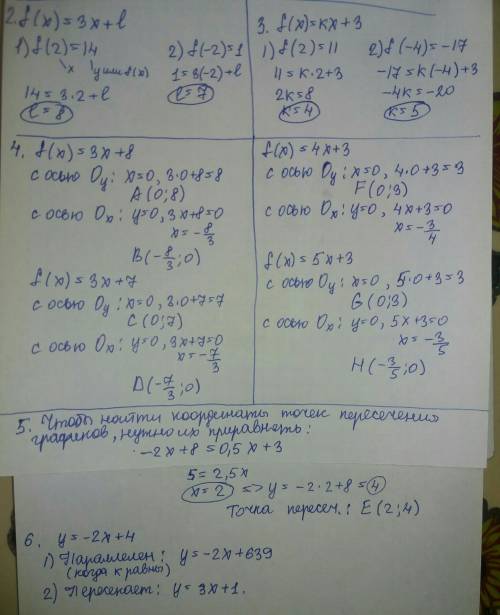 2. f(x)=3x+l
1) f(2)=14
x  y или f(x)
14=3·2+l
l=8
2) f(-2)=1
1=3(-2)+l
l=7
3. f(x)=kx+3
1) f(2)=11
11=k·2+3
2k=8
k=4
2) f(-4)=-17
-17=k(-4)+3
-4k=-20
k=5
4. f(x)=3x+8
с осью Oy: x=0, 3·0+8=8
A(0;8)
с осью Ox: y=0, 3x+8=0
x=-8/3
B(-8/3;0)
f(x)=3x+7
с осью Oy: x=0, 3·0+7=7
C(0;7)
с осью Ox: y=0, 3x+7=0
x=-7/3
D(-7/3;0)
f(x)=4x+3
с осью Oy: x=0, 4·0+3=3
F(0;3)
с осью Ox: y=0, 4x+3=0
x=-3/4
f(x)=5x+3
с осью Oy: x=0, 5·0+3=3
G(0;3)
с осью Ox: y=0, 5x+3=0
x=-3/5
H(-3/5;0)
5. Чтобы найти координаты точек пересечения
графиков, нужно их приравнять:
-2x+8=0,5x+3
5=2,5x
x=2 => y=-2·2+8=4
Точка пересеч.: E(2;4)
6. y=-2x+4
1) Параллелен: y=-2x+639
(когда k равны)
2) Пересекает: y=3x+1.